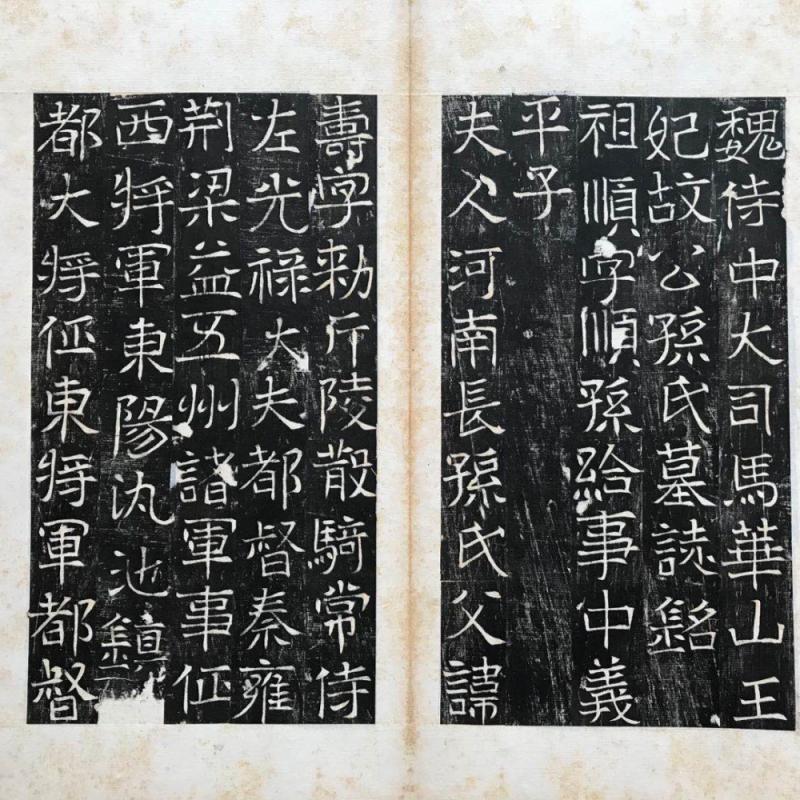 魏侍中大司馬華山王
妃故公孫氏墓誌銘
祖順字順孫給事中義
平子
夫人河南長孫氏父諱
壽字勅斤陵散騎常侍
左光祿大夫都督秦雍
荊梁益五州諸軍事征
西將軍東陽氿池鎮
都大將征東將軍都督